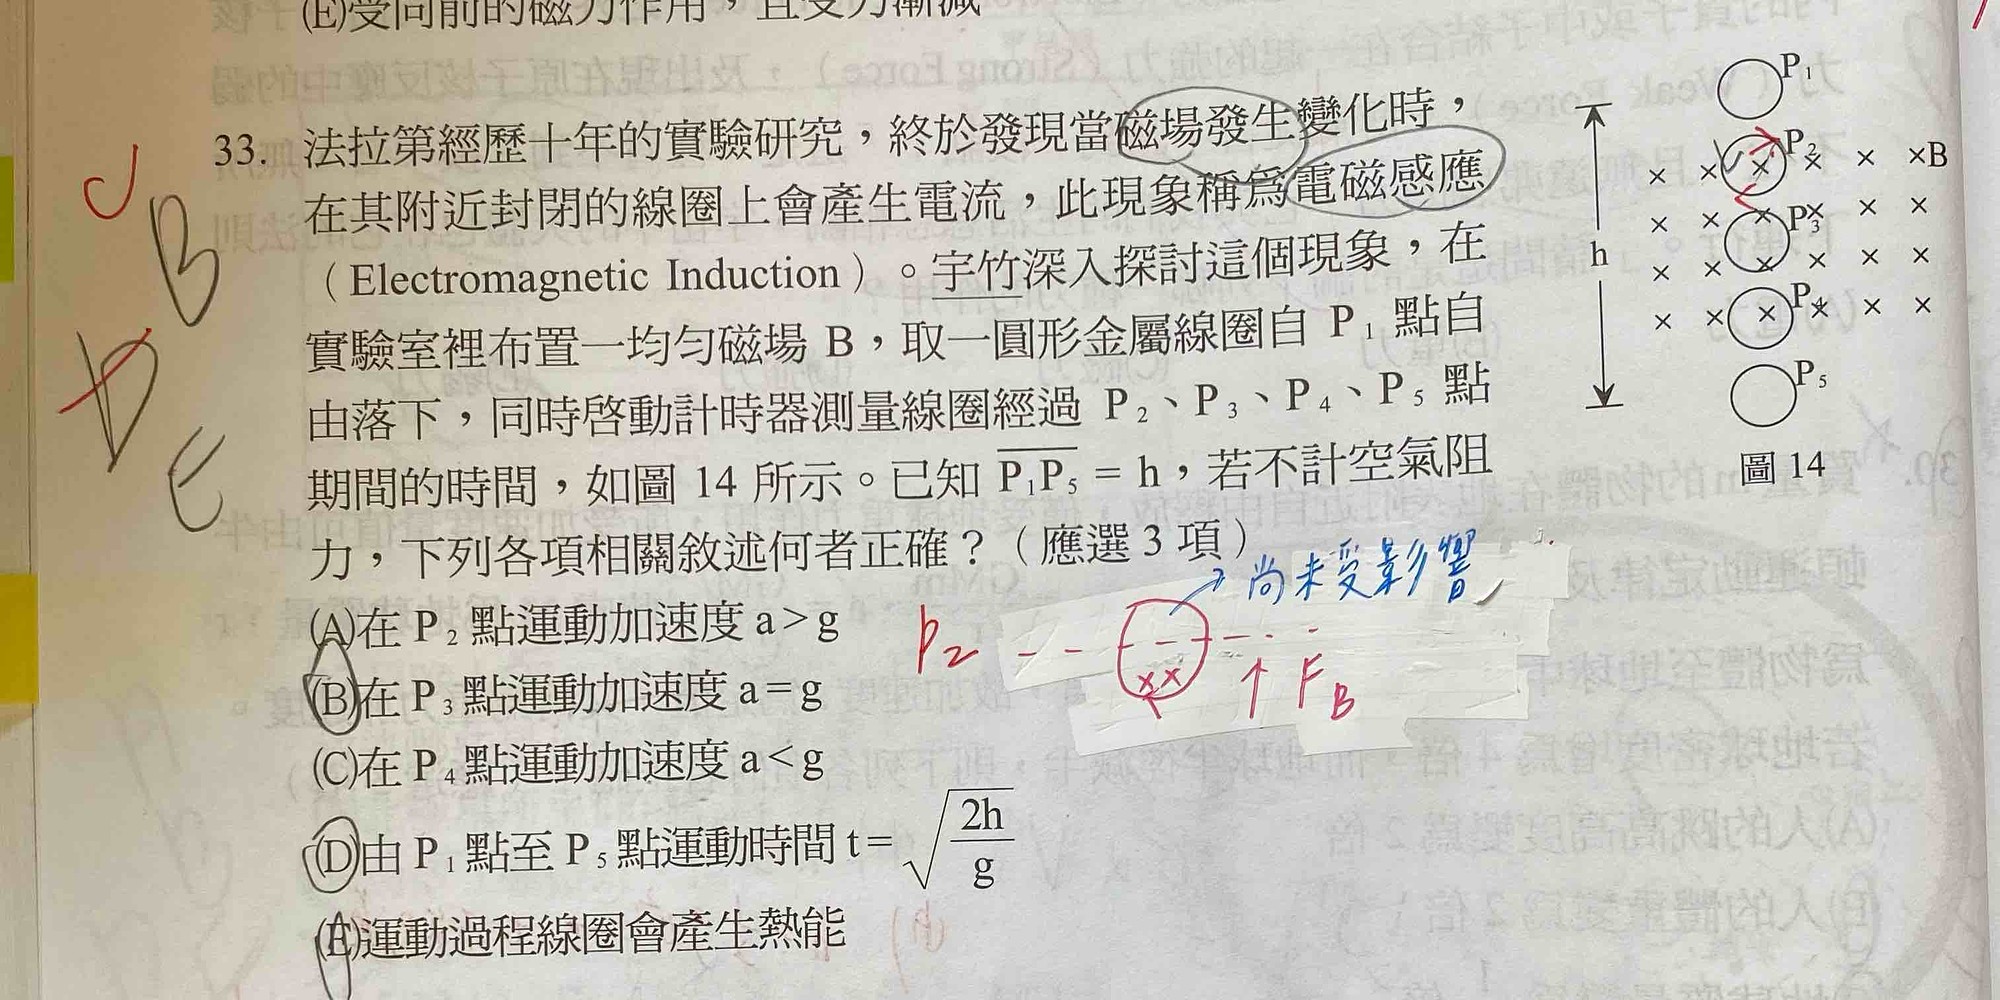 (E)受向前的磁力作用，且受力漸減
33. 法拉第經歷十年的實驗研究，終於發現當磁場發生變化時，
在其附近封閉的線圈上會產生電流，此現象稱為電磁感應
（Electromagnetic Induction）。宇竹深入探討這個現象，在
實驗室裡布置一均勻磁場 B，取一圓形金屬線圈自 P₁ 點自
由落下，同時啓動計時器測量線圈經過 P₂、P₃、P₄、P₅ 點
期間的時間，如圖 14 所示。已知 P₁P₅ = h，若不計空氣阻
力，下列各項相關敘述何者正確？（應選 3 項）
(A)在 P₂ 點運動加速度 a > g
(B)在 P₃ 點運動加速度 a = g
(C)在 P₄ 點運動加速度 a < g
(D)由 P₁ 點至 P₅ 點運動時間 t = √(2h/g)
(E)運動過程線圈會產生熱能
P₁
P₂
× × × × × ×B
P₃
× × × × × ×
h
× × × × × ×
P₄
× × × × × ×
P₅
圖 14
C
B
D
E
尚未受影響
P₂
×× F_B